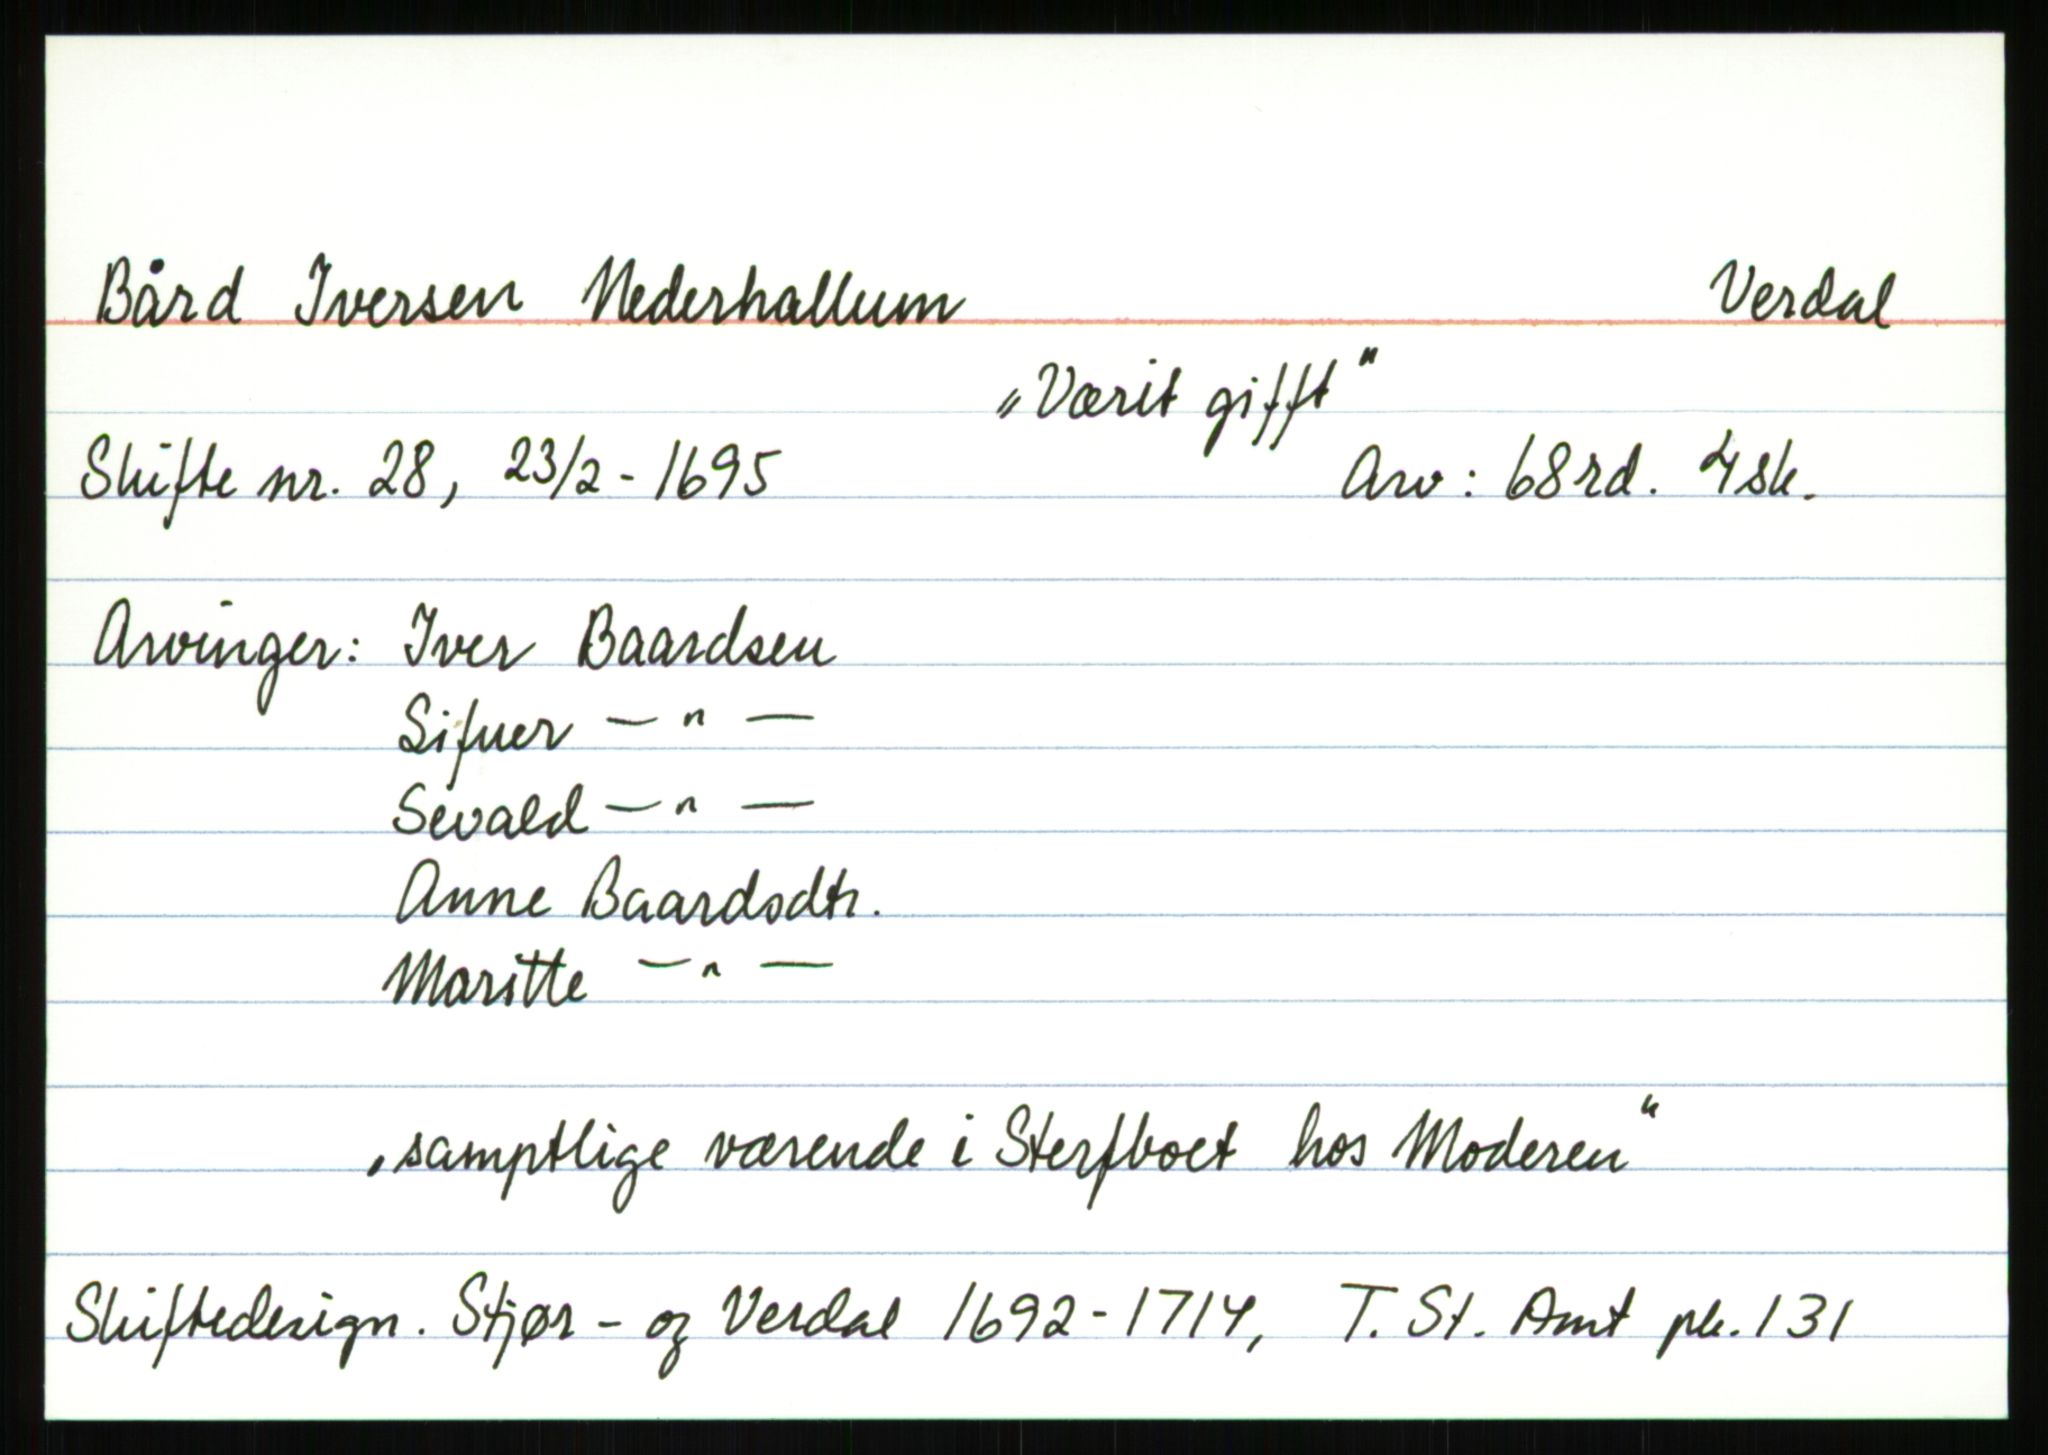 Bård Iversen Nederhallum Verdal
„Værit gifft"
Skifte nr. 28, 23/2 - 1695 Arv: 68 rd. 4 sk.
Arvinger: Iver Baardsen
Sifuer — " —
Sevald — " —
Anne Baardsdtr.
Maritte — " —
„samptlige værende i Sterfboet hos Moderen"
Skiftedesign. Stjør- og Verdal 1692-1714, T. St. Amt pk. 131